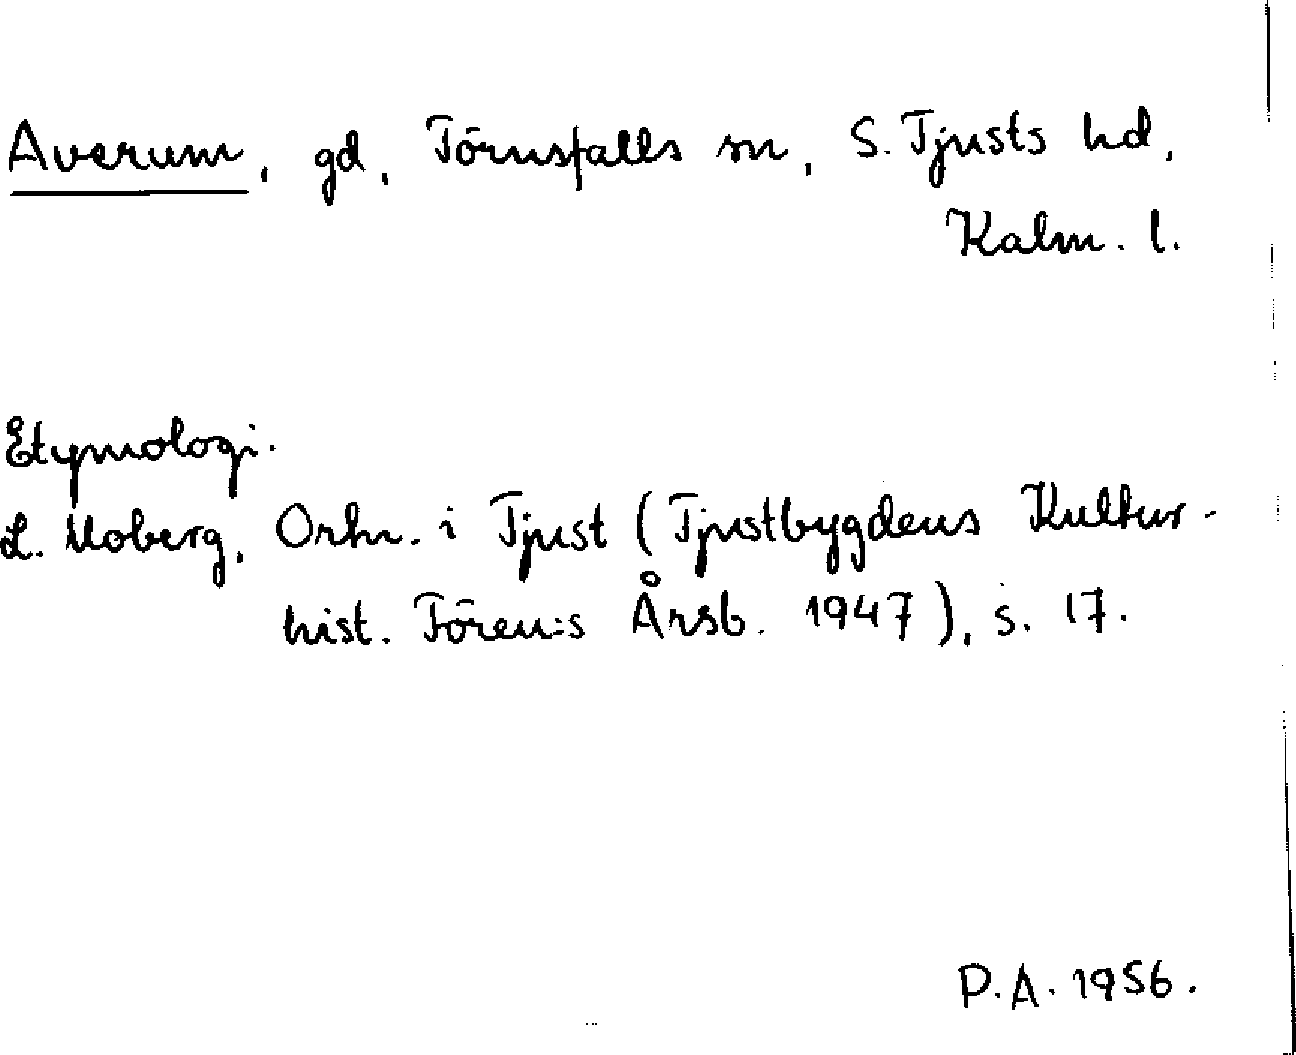 Averum, gd, Törnsfalls sn, S. Tjusts hd,
Kalm. l.
Etymologi.
L. Moberg, Ortn. i Tjust (Tjustbygdens Kultur-
hist. Fören:s Årsb. 1947), s. 17.
P.A. 1956.